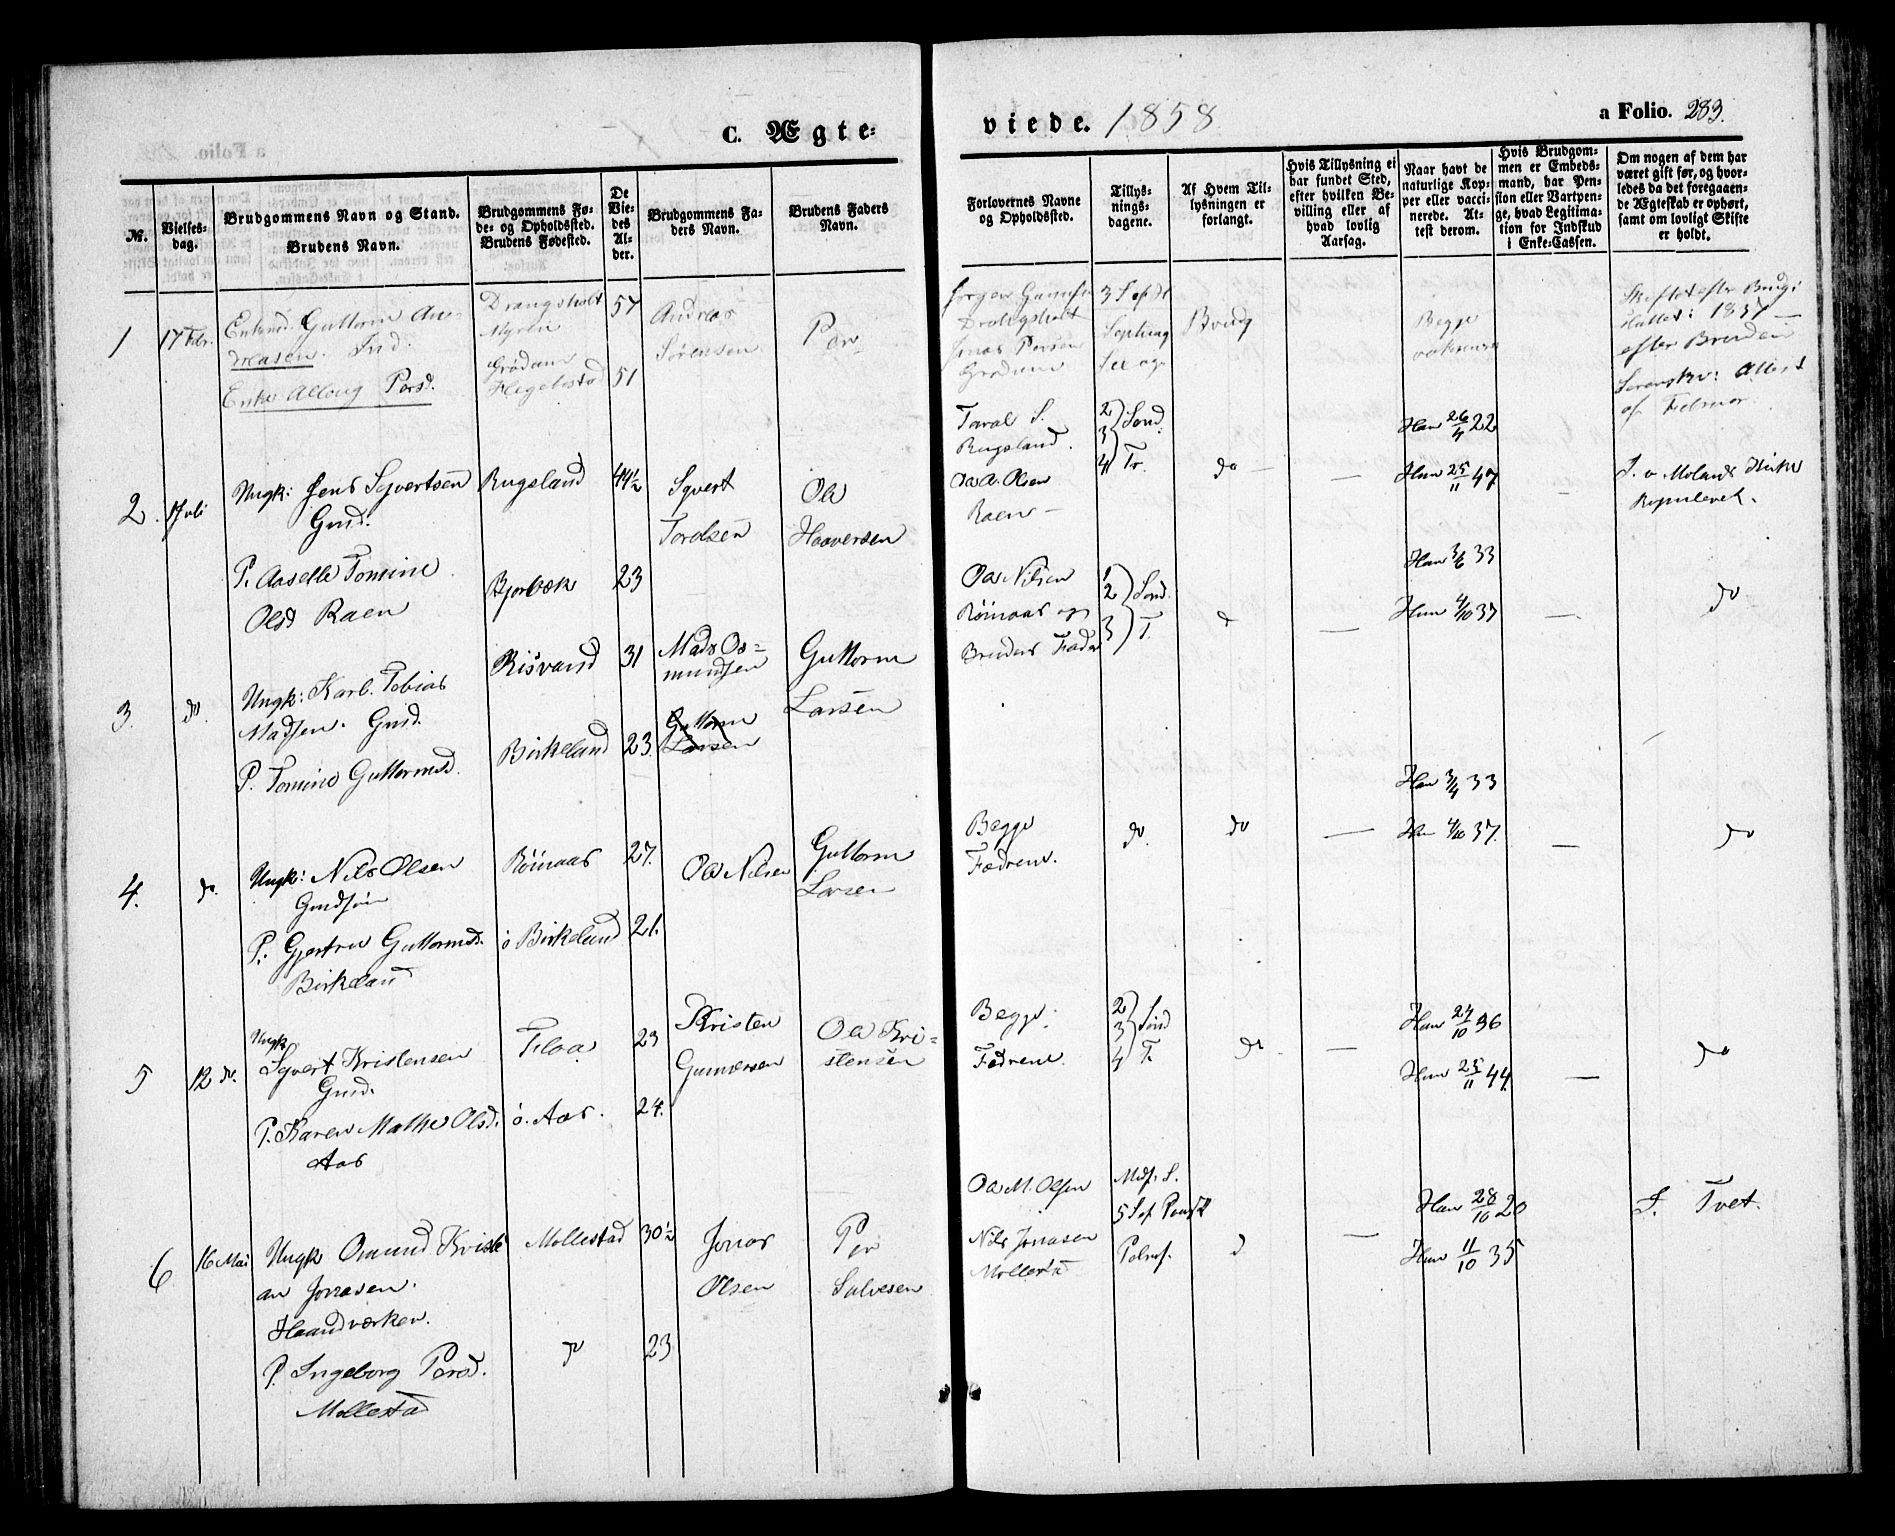 C. Ægte=
viede. 1858
a Folio. 283.
№.
Vielses-
dag.
Brudgommens Navn og Stand.
Brudens Navn.
Brudgommens Fø-
de- og Opholdssted.
Brudens Fødested.
De
Vie-
des
Al-
der.
Brudgommens Fa-
ders Navn.
Brudens Faders
Navn.
Forlovernes Navne
og Opholdssted.
Tillys-
nings-
dagene.
Af Hvem Til-
lysningen er
forlangt.
Hvis Tillysning ei
har fundet Sted,
efter hvilken Be-
villing eller af
hvad lovlig
Aarsag.
Naar havt de
naturlige Kop-
per eller vacci-
nerede. At-
test derom.
Hvis Brudgom-
men er Embeds-
mand, har Pen-
sion eller Vartpen-
ge, hvad Legitima-
tion for Indskud
i Enke-Cassen.
Om nogen af dem har
været gift før, og hvor-
ledes da det foregaaen-
de Ægteskab er ophørt,
samt om lovligt Skifte
er holdt.
1
17 Febr.
Enkmd. Guttorm An-
dreasen. Ind.
Enke Alloug Persd.
Drangsholt
Myren
Grødum
Hegelstad
57
51
Andreas
Sørensen
Per
Jørgen
Drangsholt
Jonas Persen
Grødum
3 S. ef. H.
Brudg
Begge
voksne
Skiftet efter Brudg:
1857
efter Bruden
Attest
af Februar.
2.
Ungk: Jens Syvertsen
Gmd.
P. Aaselle Tomine
Olsd Raen
Rugsland
Bjorbæk
44½
23
Syvert
Torelsen
Ola
Haaversen
Taral S.
Rugsland.
Ola A. Olsen
Raen
2
3 } Sønd.
4 Tr.
do
—
Han 26/4 22
Hun 25/11 47
—
I. v. Molands Kirke
Kopuleret.
3.
do.
Ungk: Karl Tobias
Madsen. Gmd.
P. Tomine Guttormsd.
Risvand
Birkeland
31
23.
Mads Os=
mundsen
Guttorm
Larsen
Guttorm
Larsen
Ola Nilsen
Røinaas og
Brudens Fader
1
2 } Sønd.
3 } T.
d
—
Han 3/6 33
Hun 4/10 37
—
do
4.
do.
Ungk: Nils Olsen
P. Gjertru Guttormsd.
Birkeland
Røinaas
ö Birkeland
27.
21.
Ola Nilsen
Guttorm
Larsen
Begge
Fædrene.
do.
do
—
Han 3/4 33
Hun 4/10 37.
—
do
5
12 do.
Ungk
Syvert Kristensen
Gmd.
P. Karen Malhe Olsd.
Aas
Flaa
ö. Aas.
23
24.
Kristen
Gunnersen
Ola Kri=
stensen
Begge
Fædrene
2
3 } Sønd
4 T.
do
—
Han 24/10 36
Hun 25/11 44.
—
do
6
16 Mai
Ungk Omund Kristi
an Jonasen.
Haandværker.
P. Ingeborg Persd.
Mollestad
Mollestad
do
30½
23
Jonas
Olsen
Per
Salvesen
Ola M. Olsen
Nils Jonasen
Mollestad
Midf. S.
5 S. ef. Paaske
Palmes.
d
—
Han 28/10 20
Hun 11/10 35
I. Tvet.